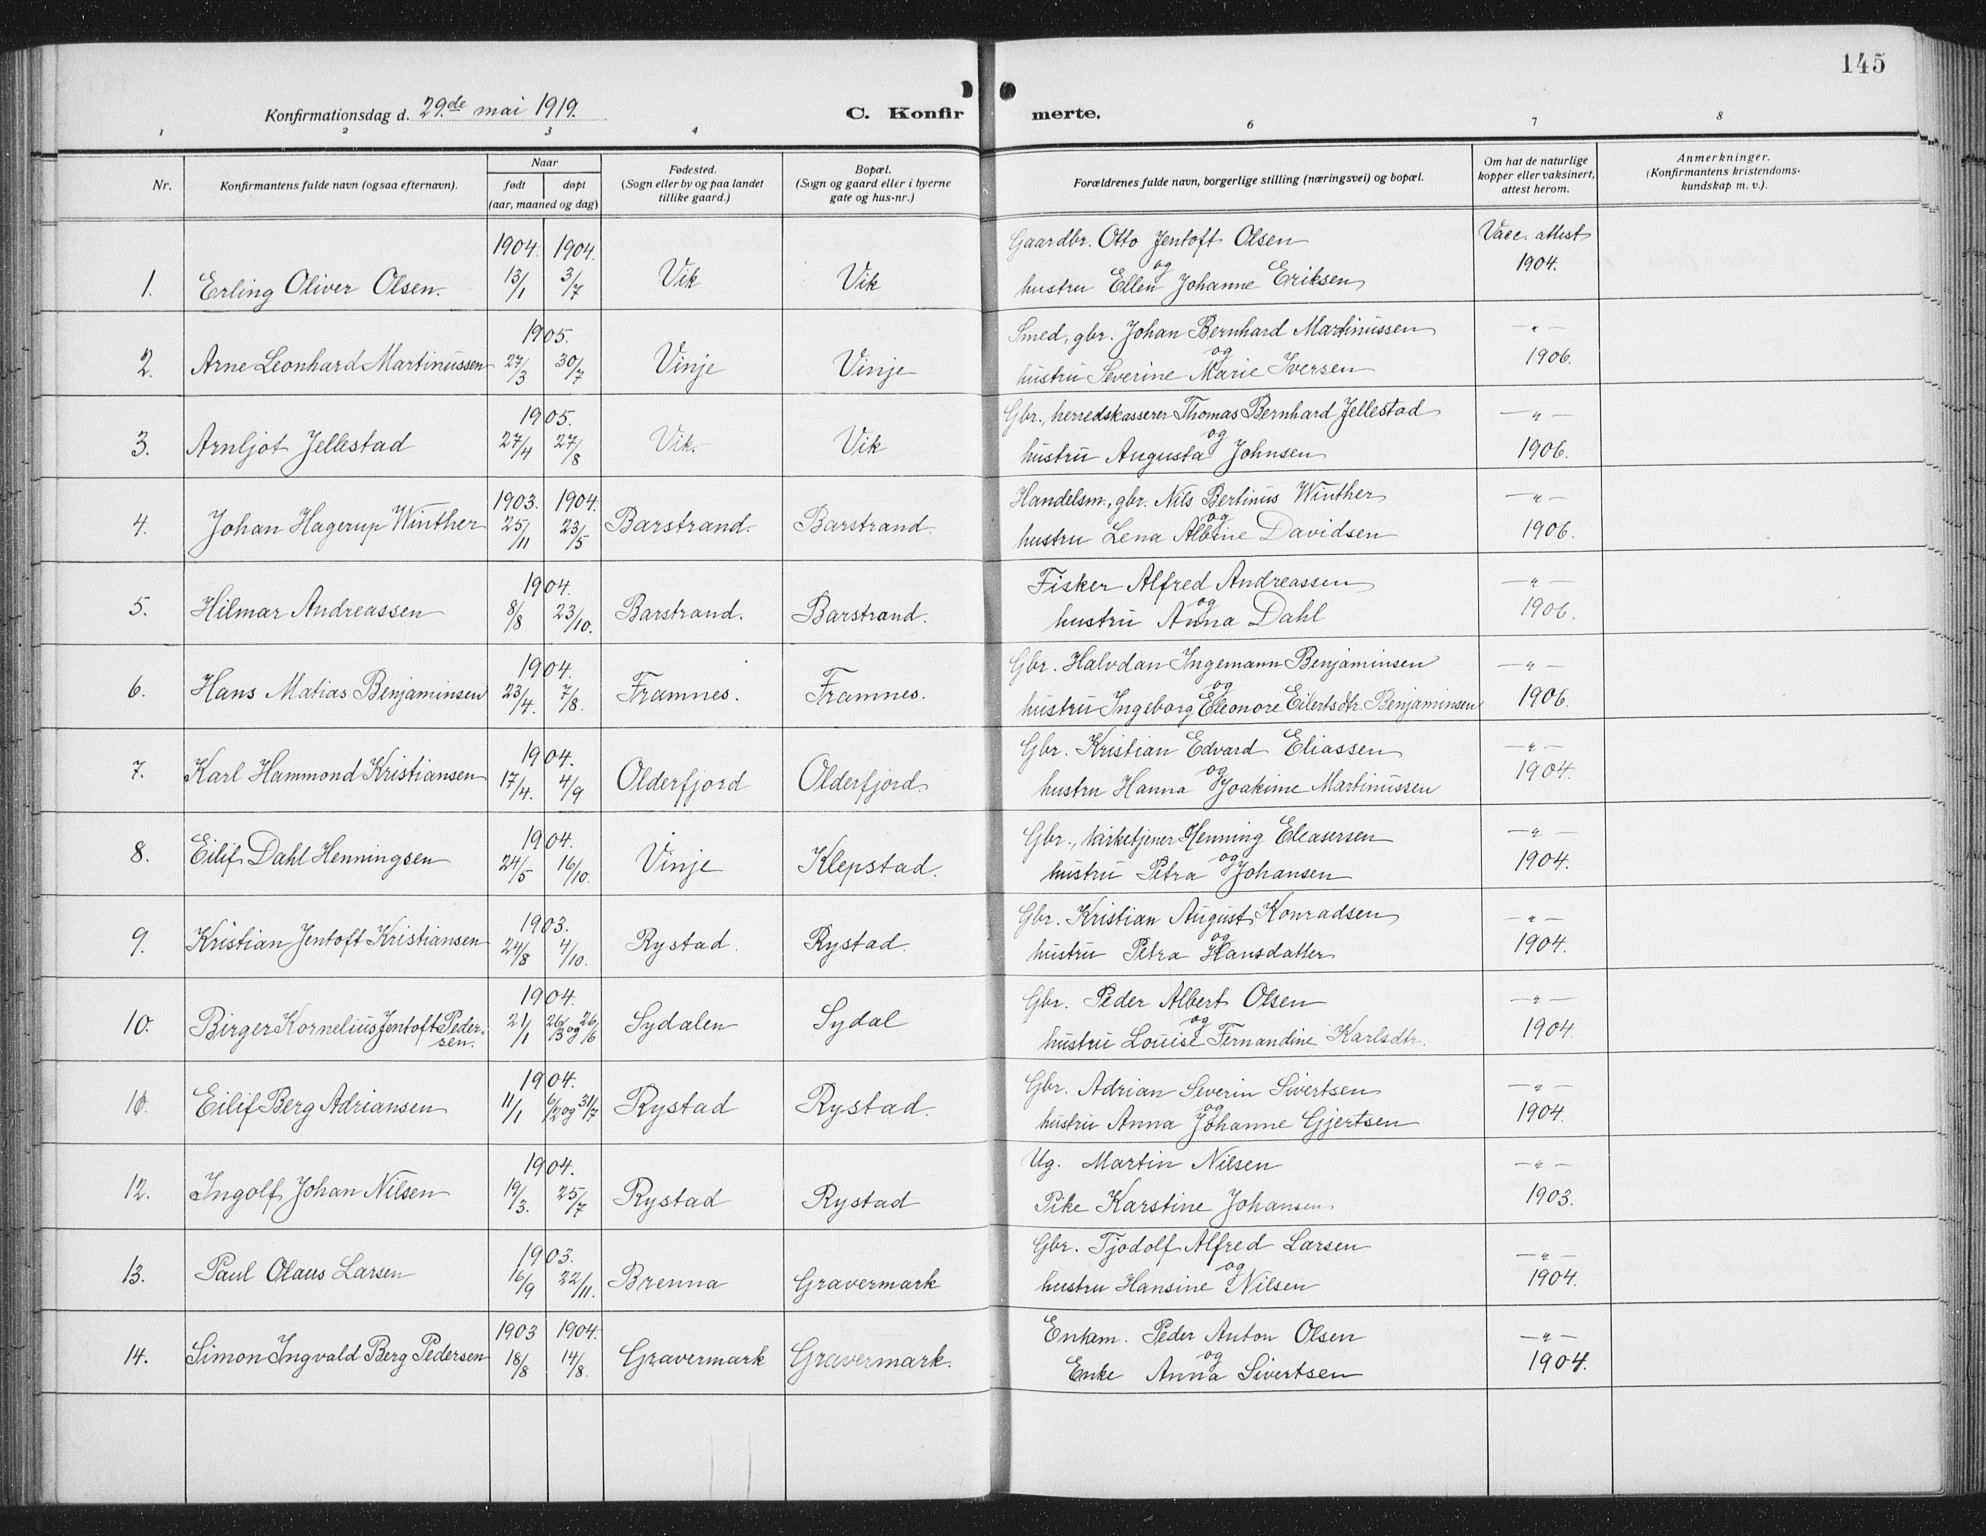 145
Konfirmationsdag d. 29de mai 1919.
C. Konfirmerte.
1 2 3 4 6 7 8
Nr.
Konfirmantens fulde navn (ogsaa efternavn).
Naar
født døpt
(aar, maaned og dag)
Fødested.
(Sogn eller by og paa landet
tillike gaard.)
Bopæl.
(Sogn og gaard eller i byerne
gate og hus-nr.)
Forældrenes fulde navn, borgerlige stilling (næringsvei) og bopæl.
Om hat de naturlige
kopper eller vaksinert,
attest herom.
Anmerkninger.
(Konfirmantens kristendoms-
kundskap m. v.).
1904. 1904. Gaardbr. Otto Jentoft Olsen Vacc. attest
1. Erling Oliver Olsen. 13/1 3/7 Vik Vik og 1904.
hustru Ellen Johanne Eriksen
1905. Smed, gbr. Johan Bernhard Martinussen — " —
2. Arne Leonhard Martinussen 27/3 30/7 Vinje Vinje og 1906.
hustru Severine Marie Iversen
1905. Gbr., herredskasserer Thomas Bernhard Jellestad — " —
3. Arnljot Jellestad 27/4 27/8 Vik. Vik og 1906.
hustru Augusta Johnsen
1903. 1904. Handelsm., gbr. Nils Bertinus Winther — " —
4. Johan Hagerup Winther 25/11 23/5 Barstrand. Barstrand. og 1906.
hustru Lena Albine Davidsen
1904. Fisker Alfred Andreassen — " —
5. Hilmar Andreassen 8/8 23/10. Barstrand. Barstrand. og 1906.
hustru Anna Dahl
1904. Gbr. Halvdan Ingemann Benjaminsen — " —
6. Hans Matias Benjaminsen 23/4. 7/8. Framnes. Framnes. og 1906.
hustru Ingeborg Eleonore Eilertsdtr. Benjaminsen
1904. Gbr. Kristian Edvard Eliassen — " —
7. Karl Hammond Kristiansen 17/4. 4/9 Olderfjord Olderfjord og 1904.
hustru Hanna Joakime Martinussen
1904. Gbr., kirketjener Henning Eleasersen — " —
8. Eilif Dahl Henningsen 24/5 16/10. Vinje Klepstad. og 1904.
hustru Petra Johansen
1903. Gbr. Kristian August Konradsen — " —
9. Kristian Jentoft Kristiansen 24/8 4/10. Rystad. Rystad. og 1904.
hustru Petra Hansdatter
1904. Gbr. Peder Albert Olsen — " —
10. Birger Kornelius Jentoft Peder- 21/1 26/3 og 26/6 Sydalen Sydal og 1904.
sen. hustru Louise Fernandine Karlsdtr.
1904. Gbr. Adrian Severin Sivertsen — " —
10. Eilif Berg Adriansen 11/1 6/2 og 31/7 Rystad Rystad. og 1904.
hustru Anna Johanne Gjertsen
1904. Ug. Martin Nilsen — " —
12. Ingolf Johan Nilsen 19/3. 25/7 Rystad Rystad 1903.
Pike Karstine Johansen
1903. Gbr. Tjodolf Alfred Larsen — " —
13. Paul Olaus Larsen 16/9 22/11. Brenna Gravermark og 1904.
hustru Hansine Nilsen
1903 1904. Enkem. Peder Anton Olsen — " —
14. Simon Ingvald Berg Pedersen 18/8 14/8. Gravermark Gravermark. og 1904.
Enke Anna Sivertsen